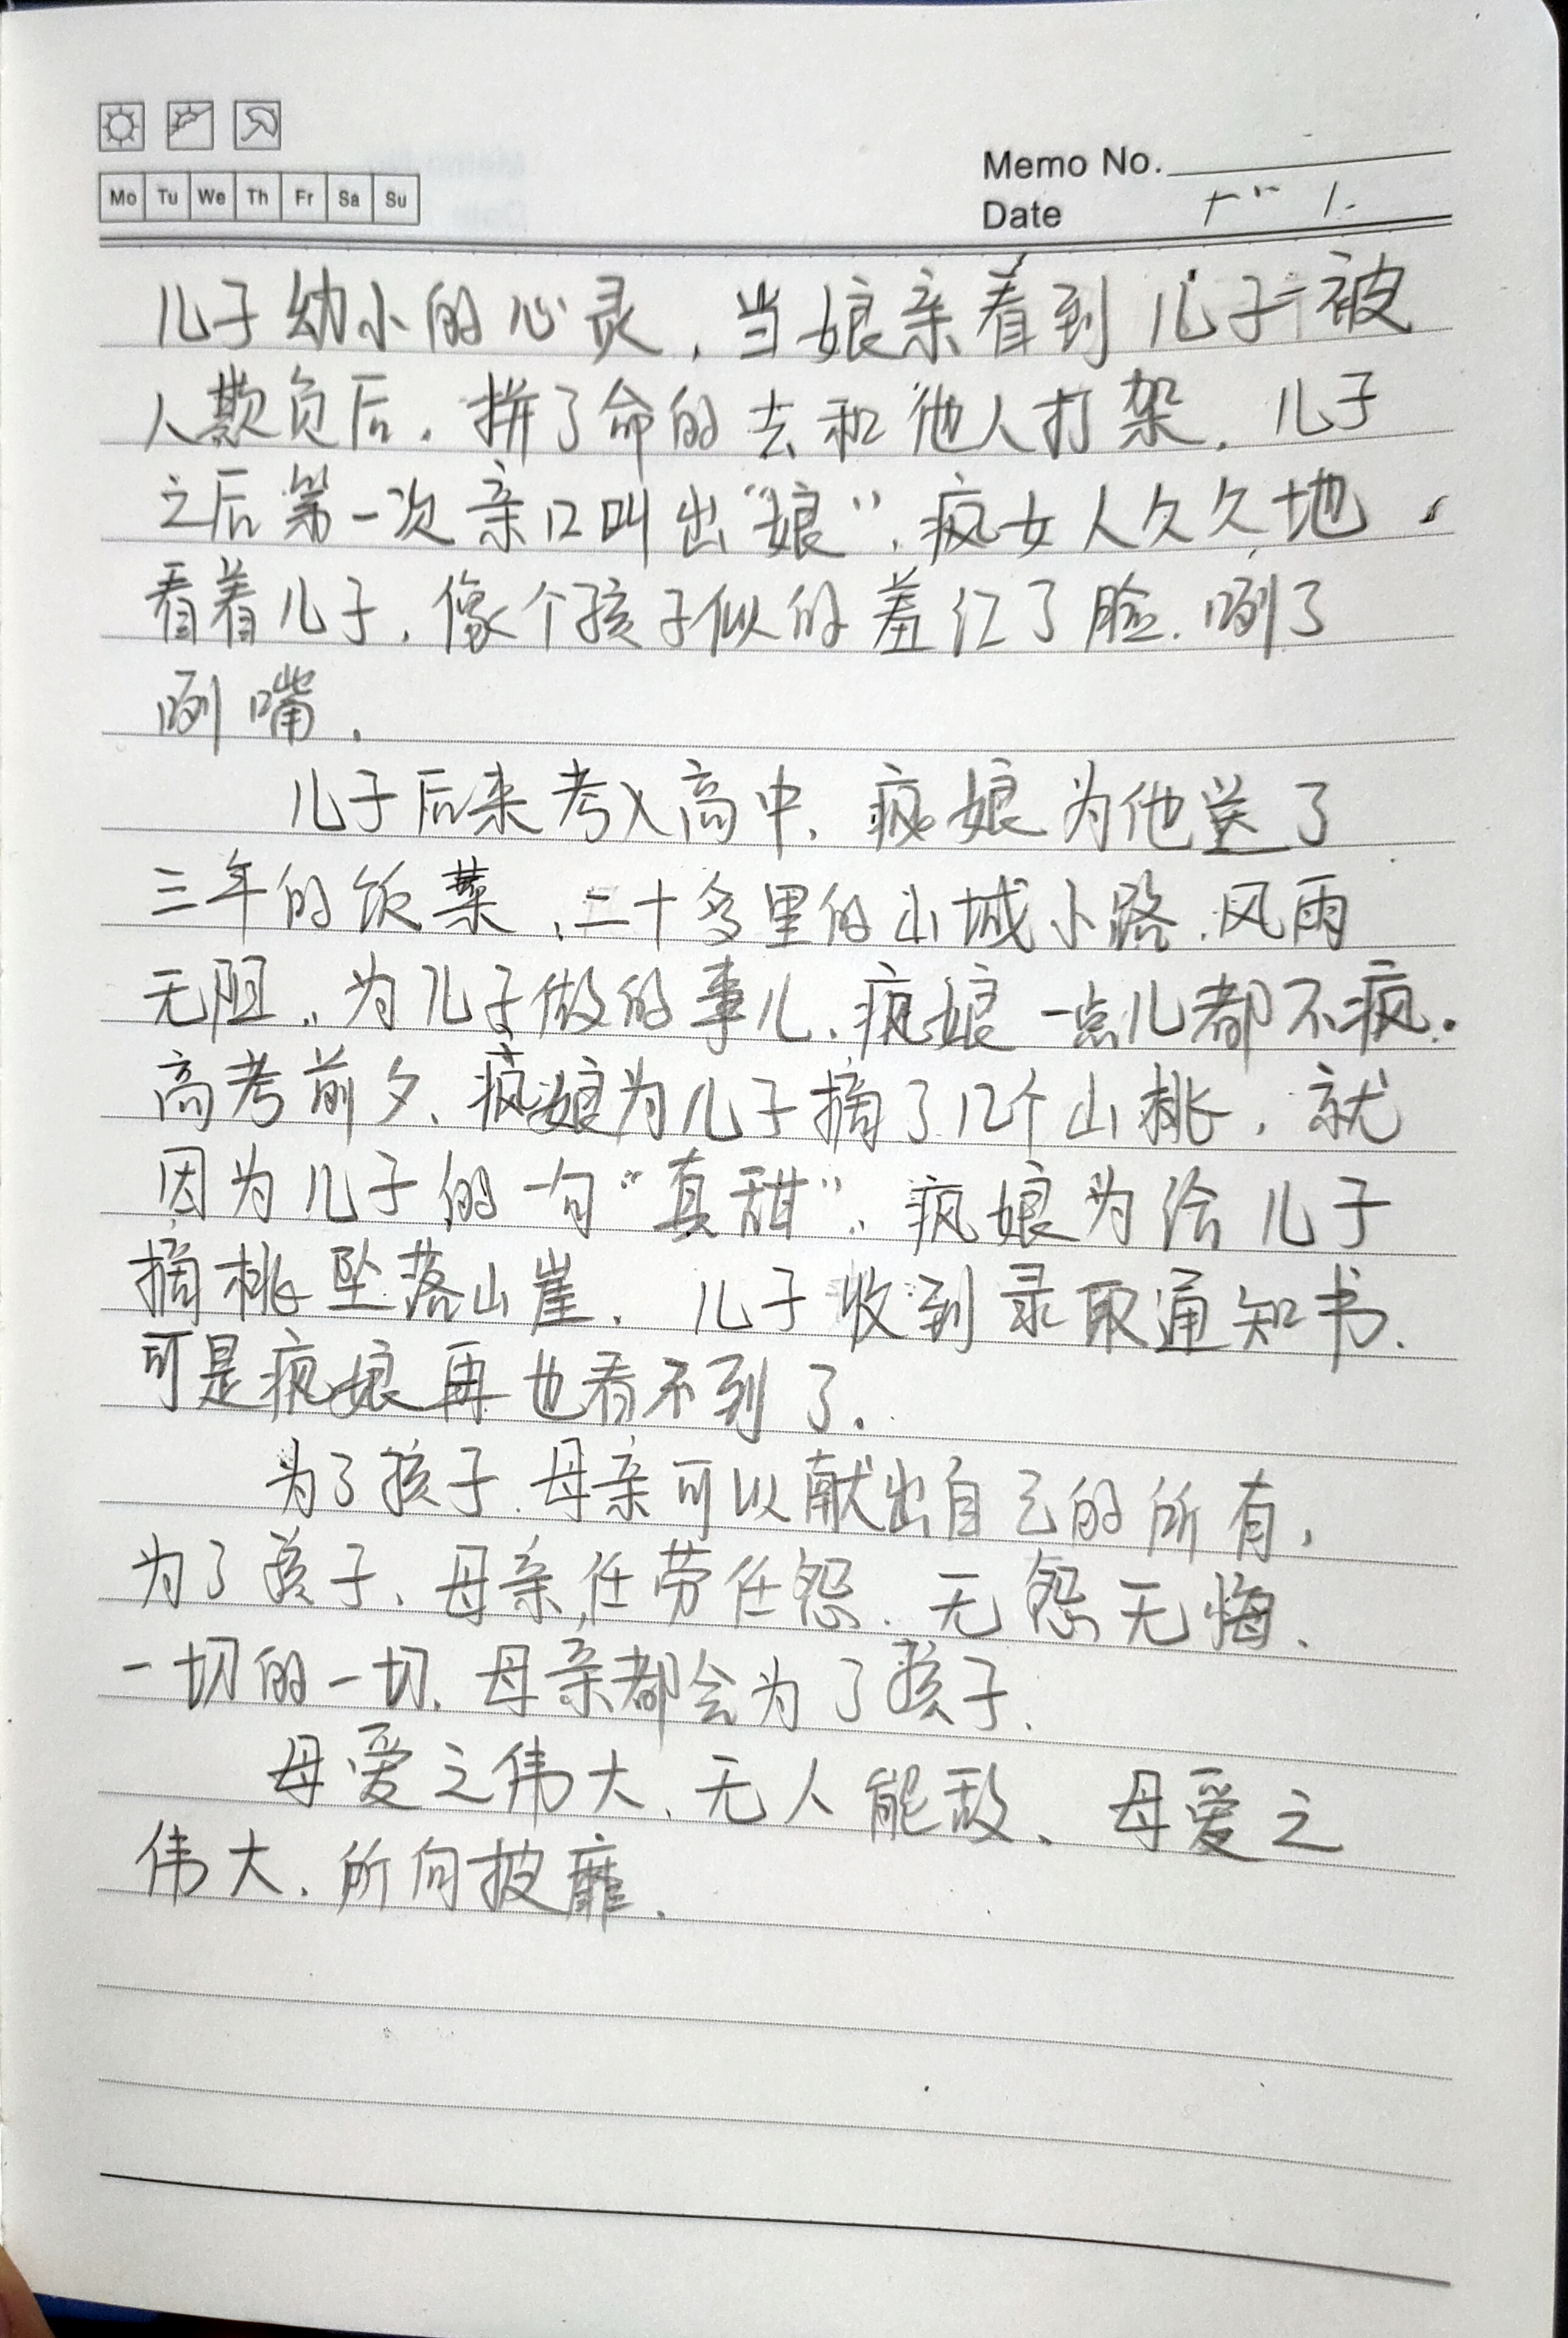 Mo Tu We Th Fr Sa Su
Memo No.
Date
儿子幼小的心灵,当娘亲看到儿子被
人欺负后,拼了命的去和他人打架,儿子
之后第一次亲口叫出“娘”,疯女人久久地
看着儿子,像个孩子似的羞红了脸,咧了
咧嘴.
儿子后来考入高中,疯娘为他送了
三年的饭菜,二十多里的山城小路,风雨
无阻,为儿子做的事儿,疯娘一点儿都不疯.
高考前夕,疯娘为儿子摘了几个山桃,就
因为儿子的一句“真甜”,疯娘为给儿子
摘桃坠落山崖,儿子收到录取通知书,
可是疯娘再也看不到了.
为了孩子,母亲可以献出自己的所有,
为了孩子,母亲任劳任怨,无怨无悔,
一切的一切,母亲都会为了孩子.
母爱之伟大,无人能敌,母爱之
伟大,所向披靡.